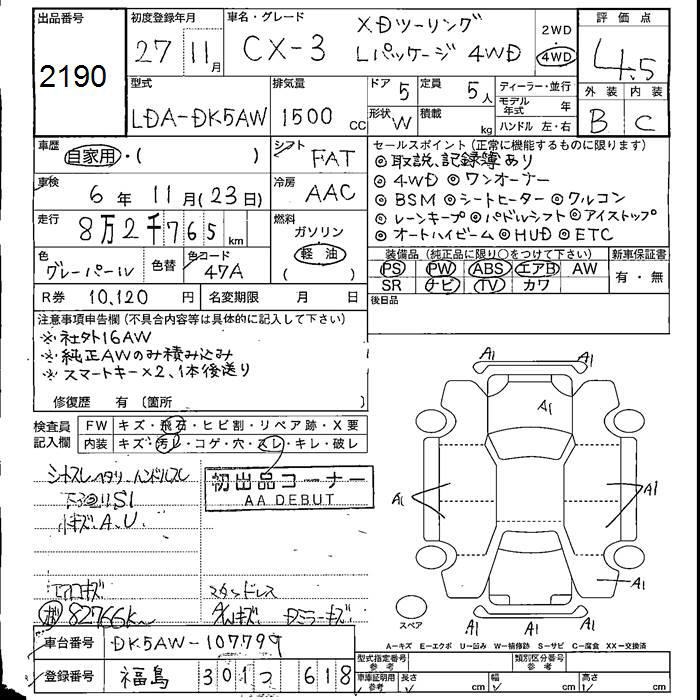 出品番号 初度登録年月 車名・グレード XDツーリング 2WD 評価点
2190 27 11月 CX-3 Lパッケージ 4WD ・ 4WD 4.5
型式 排気量 ドア 5 定員 5人 ディーラー・並行 外装 内装
LDA-DK5AW 1500 CC 形状 W 積載 kg モデル年式 年 B C
ハンドル 左・右
車歴 自家用・( ) シフト FAT セールスポイント(正常に機能するものに限ります)
◎取説、記録簿あり
車検 6年 11月(23日) 冷房 AAC ◎4WD ◎ワンオーナー
◎BSM ◎シートヒーター ◎クルコン
走行 8万2千765km 燃料 ガソリン ◎レーンキープ ◎パドルシフト ◎アイストップ
軽油 ◎オートハイビーム ◎HUD ◎ETC
色 グレーパール 色替 色コード 47A ( ) 装備品(純正品に限り○をつけて下さい) 新車保証書
PS PW ABS エアB AW 有・無
SR ナビ TV カワ
R券 10,120 円 名変期限 月 日 後日品
注意事項申告欄(不具合内容等は具体的に記入して下さい)
※社外16AW
※純正AWのみ積み込み
※スマートキー×2、1本後送り
修復歴 有 〔箇所 〕
検査員記入欄 FW キズ・飛石・ヒビ割・リペア跡・X要
内装 キズ・汚レ・コゲ・穴・スレ・キレ・破レ
シートスレヘタリ ハンドルスレ
初出品コーナー
AA DEBUT
下廻りS1
小キズA.U
エアロキズ スタッドレス
82766K AWキズ Dミラーキズ
車台番号 DK5AW-107799
登録番号 福島 301 つ 618
A1 A1
A1
A1 A1
A1
A1 A1
スペア
A=キズ E=エクボ U=凹み W=補修跡 S=サビ C=腐食 XX=交換済
型式指定番号 参考 類別区分番号 参考
車庫証明用 参考 長さ cm 幅 cm 高さ cm